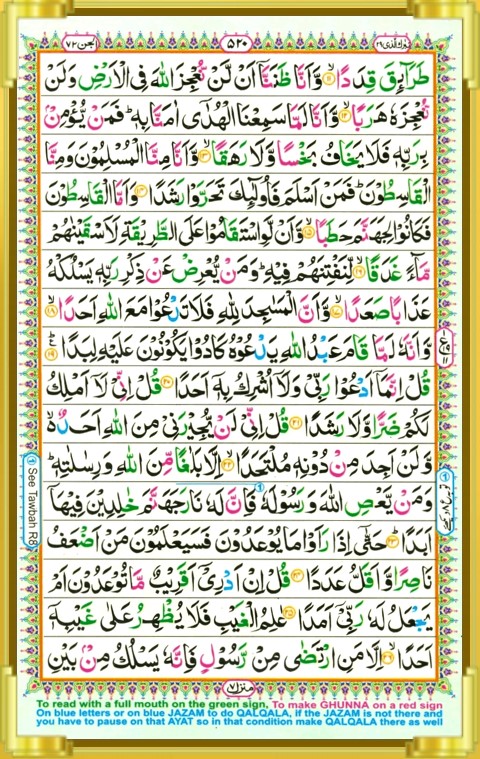 الجن ٧٢
٥٢٠
تبٰرك الذی ٢٩
طَرَآئِقَ قِدَدًا ۙ﴿۱۱﴾ وَّاَنَّا ظَنَنَّاۤ اَنْ لَّنْ نُّعْجِزَ اللّٰهَ فِی الْاَرْضِ وَلَنْ
نُّعْجِزَهٗ هَرَبًا ۙ﴿۱۲﴾ وَّاَنَّا لَمَّا سَمِعْنَا الْهُدٰۤی اٰمَنَّا بِهٖ ؕ فَمَنْ یُّؤْمِنْۢ
بِرَبِّهٖ فَلَا یَخَافُ بَخْسًا وَّلَا رَهَقًا ۙ﴿۱۳﴾ وَّاَنَّا مِنَّا الْمُسْلِمُوْنَ وَمِنَّا
الْقٰسِطُوْنَ ؕ فَمَنْ اَسْلَمَ فَاُولٰٓئِكَ تَحَرَّوْا رَشَدًا ﴿۱۴﴾ وَاَمَّا الْقٰسِطُوْنَ
فَكَانُوْا لِجَهَنَّمَ حَطَبًا ۙ﴿۱۵﴾ وَّاَنْ لَّوِ اسْتَقَامُوْا عَلَی الطَّرِیْقَةِ لَاَسْقَیْنٰهُمْ
مَّآءً غَدَقًا ۙ﴿۱۶﴾ لِّنَفْتِنَهُمْ فِیْهِ ؕ وَمَنْ یُّعْرِضْ عَنْ ذِكْرِ رَبِّهٖ یَسْلُكْهُ
عَذَابًا صَعَدًا ۙ﴿۱۷﴾ وَّاَنَّ الْمَسٰجِدَ لِلّٰهِ فَلَا تَدْعُوْا مَعَ اللّٰهِ اَحَدًا ۙ﴿۱۸﴾
وَّاَنَّهٗ لَمَّا قَامَ عَبْدُ اللّٰهِ یَدْعُوْهُ كَادُوْا یَكُوْنُوْنَ عَلَیْهِ لِبَدًا ﴿۱۹﴾
قُلْ اِنَّمَاۤ اَدْعُوْا رَبِّیْ وَلَاۤ اُشْرِكُ بِهٖۤ اَحَدًا ﴿۲۰﴾ قُلْ اِنِّیْ لَاۤ اَمْلِكُ
لَكُمْ ضَرًّا وَّلَا رَشَدًا ﴿۲۱﴾ قُلْ اِنِّیْ لَنْ یُّجِیْرَنِیْ مِنَ اللّٰهِ اَحَدٌ ۙ
وَّلَنْ اَجِدَ مِنْ دُوْنِهٖ مُلْتَحَدًا ۙ﴿۲۲﴾ اِلَّا بَلٰغًا مِّنَ اللّٰهِ وَرِسٰلٰتِهٖ ؕ
وَمَنْ یَّعْصِ اللّٰهَ وَرَسُوْلَهٗ فَاِنَّ لَهٗ نَارَ جَهَنَّمَ خٰلِدِیْنَ فِیْهَاۤ
اَبَدًا ؕ﴿۲۳﴾ حَتّٰۤی اِذَا رَاَوْا مَا یُوْعَدُوْنَ فَسَیَعْلَمُوْنَ مَنْ اَضْعَفُ
نَاصِرًا وَّاَقَلُّ عَدَدًا ﴿۲۴﴾ قُلْ اِنْ اَدْرِیْۤ اَقَرِیْبٌ مَّا تُوْعَدُوْنَ اَمْ
یَجْعَلُ لَهٗ رَبِّیْۤ اَمَدًا ﴿۲۵﴾ عٰلِمُ الْغَیْبِ فَلَا یُظْهِرُ عَلٰی غَیْبِهٖۤ
اَحَدًا ۙ﴿۲۶﴾ اِلَّا مَنِ ارْتَضٰی مِنْ رَّسُوْلٍ فَاِنَّهٗ یَسْلُكُ مِنْۢ بَیْنِ
See Tawbah R8
منزل ٧
To read with a full mouth on the green sign, To make GHUNNA on a red sign
On blue letters or on blue JAZAM to do QALQALA, if the JAZAM is not there and
you have to pause on that AYAT so in that condition make QALQALA there as well